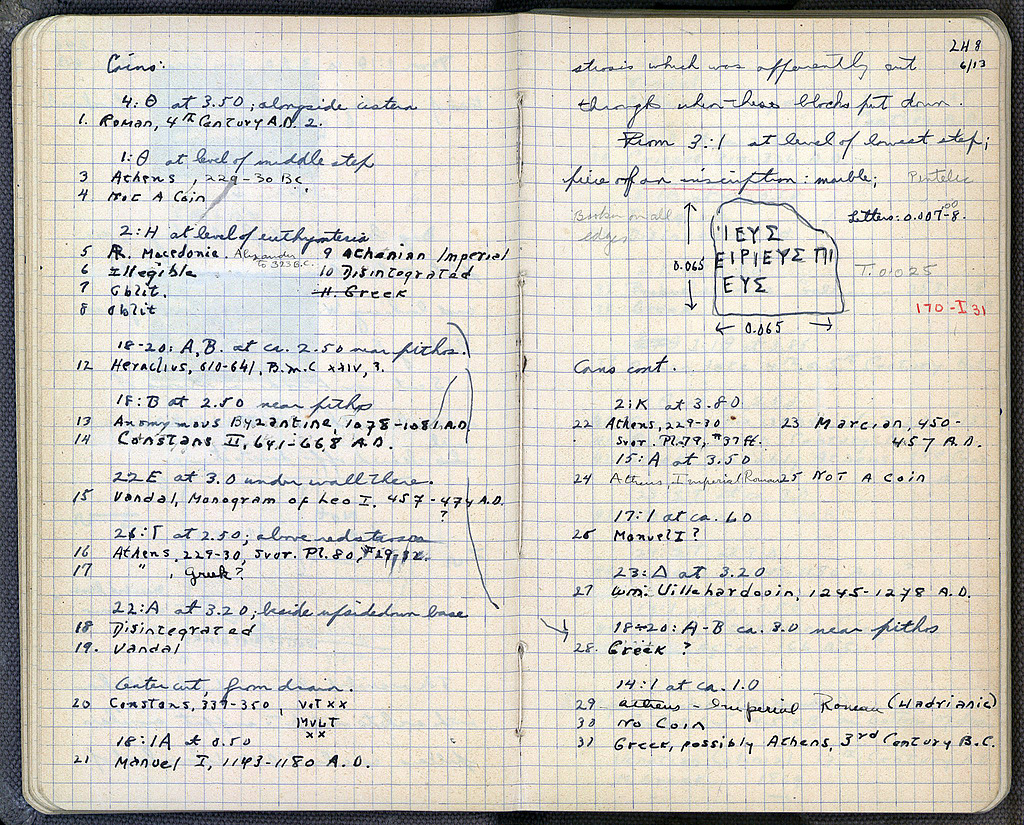 Coins:
4: Θ at 3.50; alongside cistern
1. Roman, 4th Century A.D. 2.
1: Θ at level of middle step
3 Athens, 229-30 BC.
4 Not A Coin
2: H at level of euthynteria
5 AR. Macedonia. Alexander to 323 B.C. 9 Athenian Imperial
6 Illegible 10 Disintegrated
7 Oblit. 11. Greek
8 Oblit
18-20: A, B. at ca. 2.50 near pithos.
12 Heraclius, 610-641, B.M.C XXIV, 3.
18: B at 2.50 near pithos
13 Anonymous Byzantine, 1078-1081 A.D.
14 Constans II, 641-668 A.D.
22 E at 3.0 under wall there.
15 Vandal, Monogram of Leo I. 457-474 A.D.
?
26: Γ at 2.50; above red
16 Athens, 229-30, Svor. Pl. 80, #29,
17 " , Greek?
22: A at 3.20; beside upsidedown base
18 Disintegrated
19. Vandal
Center cut, from drain.
20 Constans, 339-350, VOT XX
MVLT
XX
18: IA at 0.50
21 Manuel I, 1143-1180 A.D.
248
6/13
strosis which was apparently cut
through when these blocks put down.
From 3:1 at level of lowest step;
piece of an inscription: marble; Pentelic
Broken on all
edges
Letters: 0.007-8.
ΙΕΥΣ
ΕΙΡΙΕΥΣ ΠΙ
ΕΥΣ
0.065
T. 0.025
170-I 31
0.065
Coins cont.
2: K at 3.80
22 Athens, 229-30 23 Marcian, 450-
Svor. Pl. 79, #37 ff. 457 A.D.
15: A at 3.50
24 Athens, Imperial Roman 25 Not A Coin
17: 1 at ca. 60
26 Manuel I?
23: Δ at 3.20
27 Wm. Villehardouin, 1245-1278 A.D.
18-20: A-B ca. 3.0 near pithos
28. Greek ?
14: 1 at ca. 1.0
29 Athens - Imperial Roman (Hadrianic)
30 No Coin
31 Greek, possibly Athens, 3rd Century B.C.